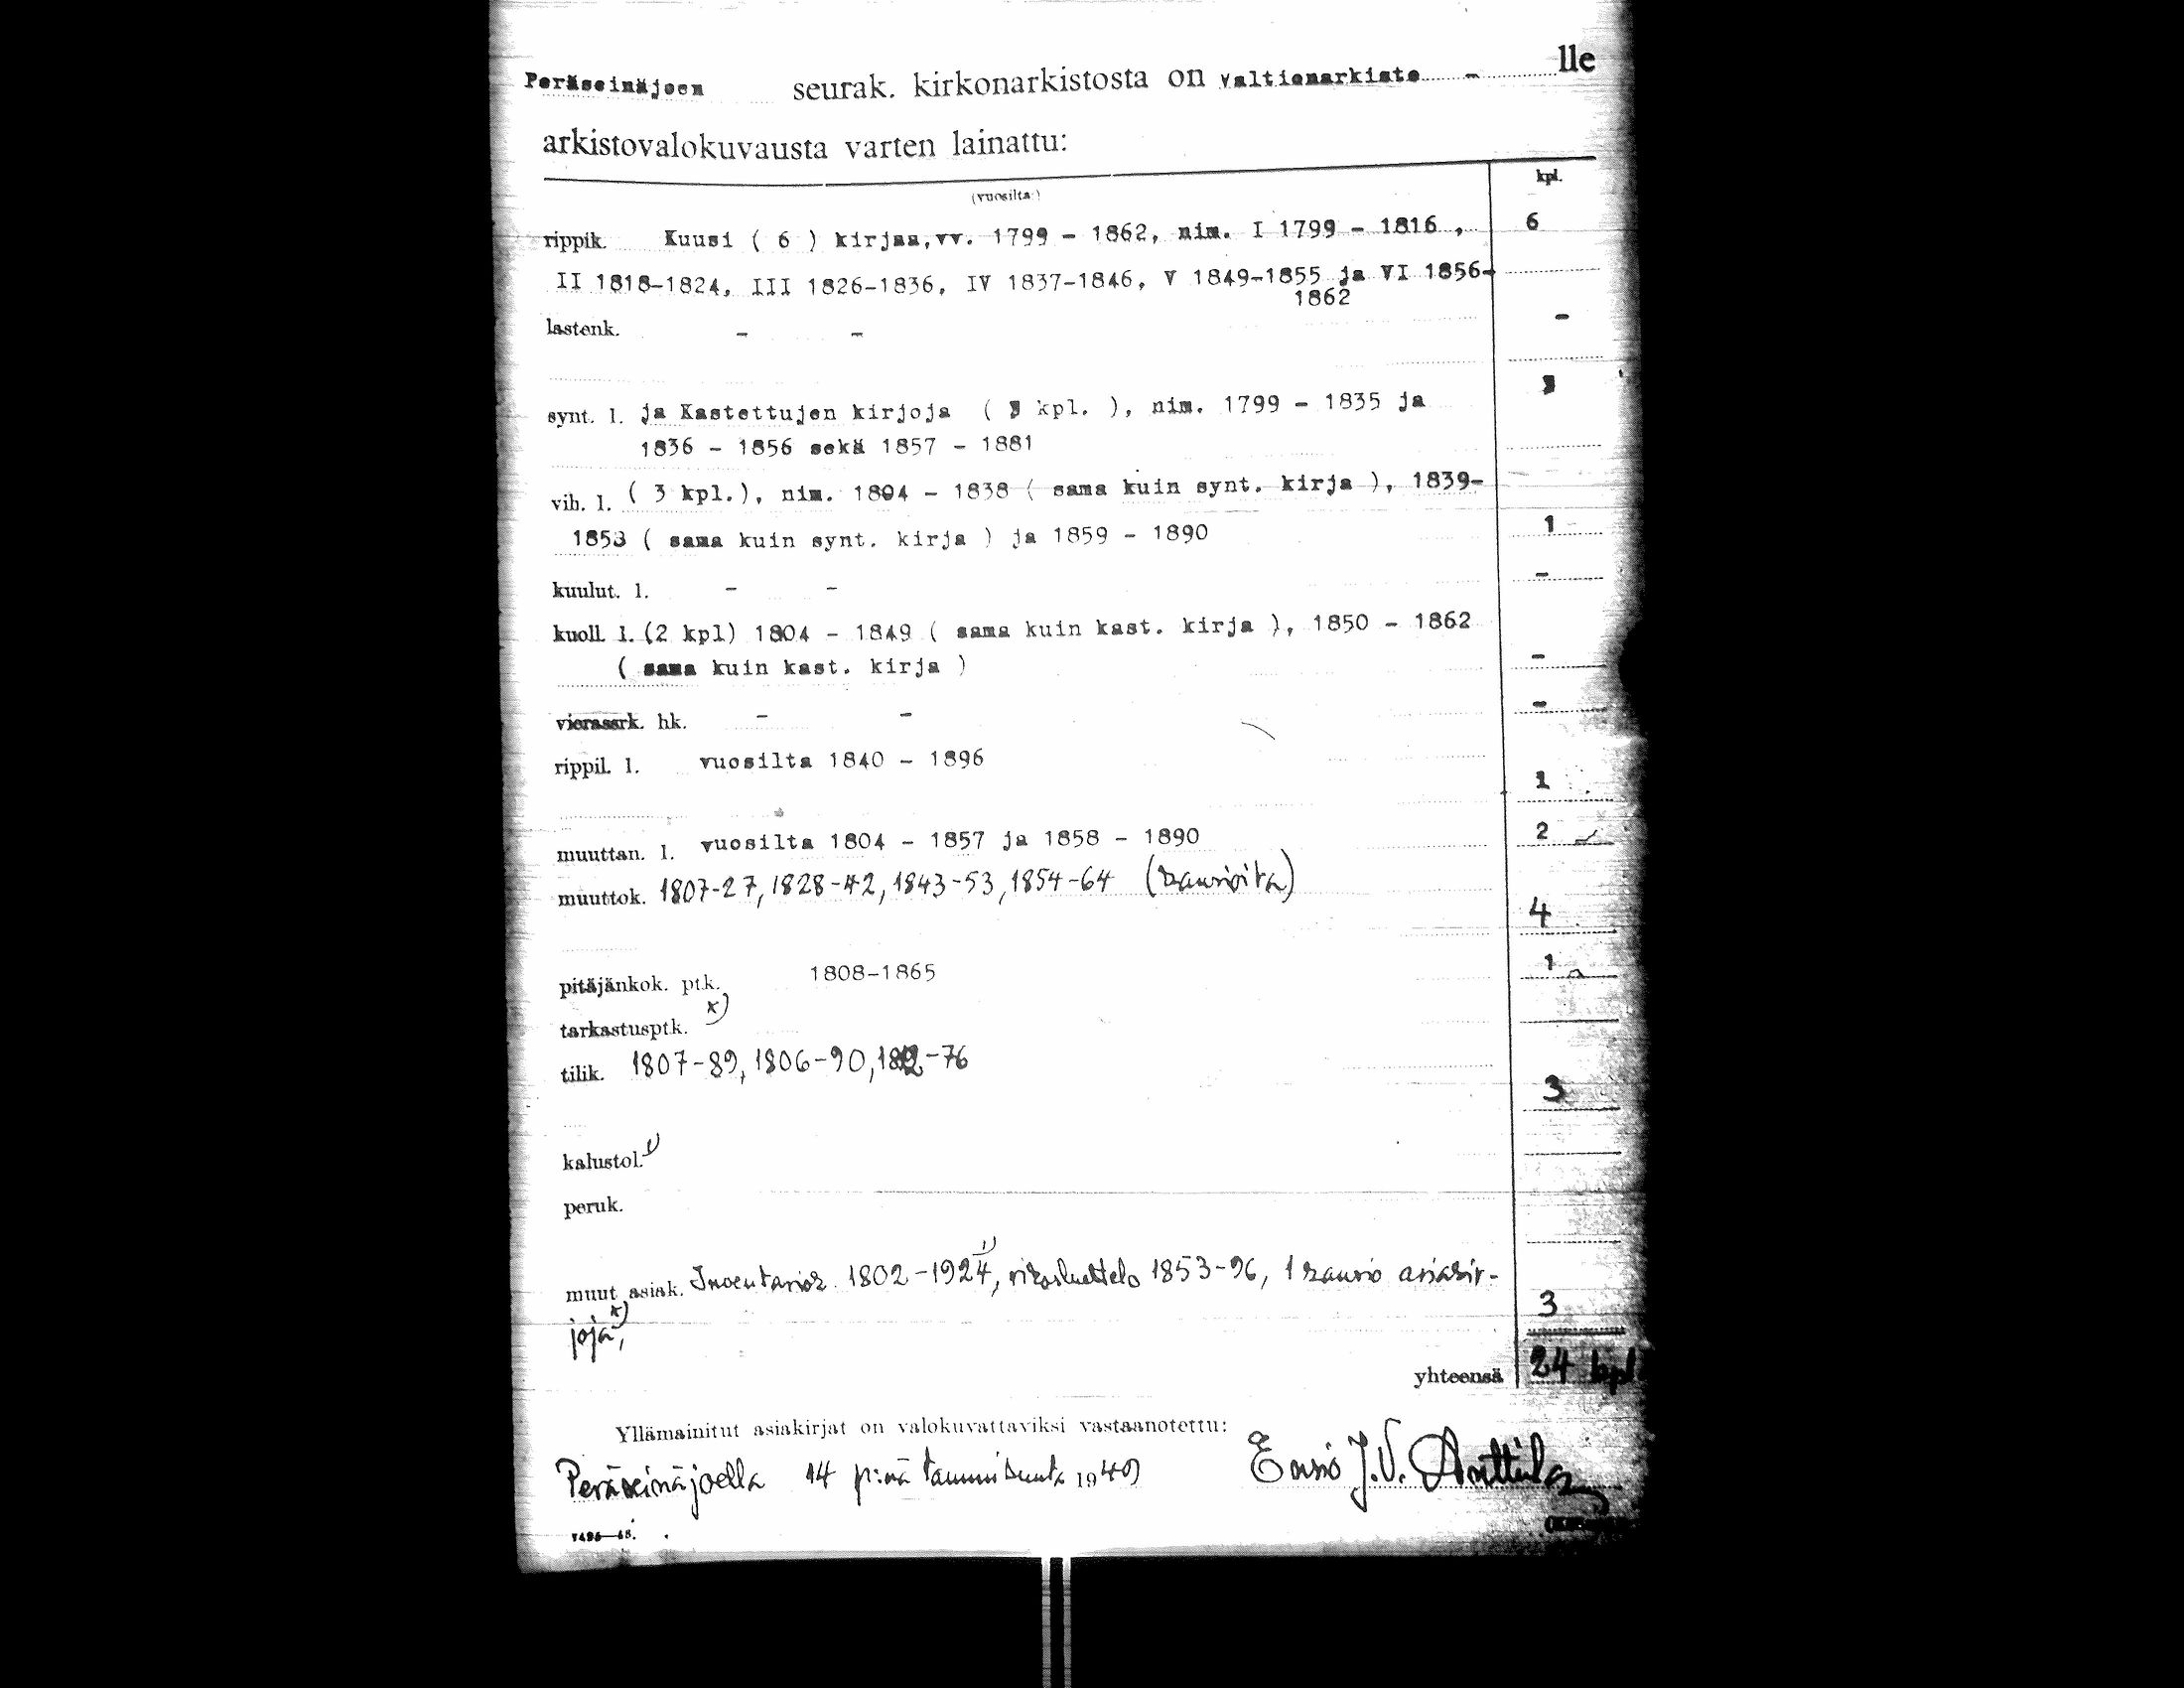 Peräseinäjoen seurak. kirkonarkistosta on valtionarkisto - lle
arkistovalokuvausta varten lainattu:
(vuosilta:) kpl.
rippik. Kuusi ( 6 ) kirjaa,vv. 1799 - 1862, nim. I 1799 - 1816 , 6
II 1818-1824, III 1826-1836, IV 1837-1846, V 1849-1855 ja VI 1856-
1862
lastenk. - - -
synt. l. ja Kastettujen kirjoja ( 3 kpl. ), nim. 1799 - 1835 ja 3
1836 - 1856 sekä 1857 - 1881
vih. l. ( 3 kpl.), nim. 1804 - 1838 ( sama kuin synt. kirja ), 1839-
1853 ( sama kuin synt. kirja ) ja 1859 - 1890 1
kuulut. l. - - -
kuoll. l. (2 kpl) 1804 - 1849 ( sama kuin kast. kirja ), 1850 - 1862
( sama kuin kast. kirja ) -
vierassrk. hk. - - -
rippil. l. vuosilta 1840 - 1896 1
muuttan. l. vuosilta 1804 - 1857 ja 1858 - 1890 2
muuttok. 1807-27, 1828-42, 1843-53, 1854-64 (kansioita) 4
pitäjänkok. ptk. 1808-1865 1
tarkastusptk. x)
tilik. 1807-89, 1806-90, 1812-76 3
kalustol. 1)
peruk.
muut asiak. Inventariok. 1802-1924 1), rikosluettelo 1853-96, 1 kansio asiakir-
joja x), 3
yhteensä 24 kpl
Yllämainitut asiakirjat on valokuvattaviksi vastaanotettu:
Peräseinäjoella 14 p:nä tammikuuta 1949 Ensio J.V. Anttila